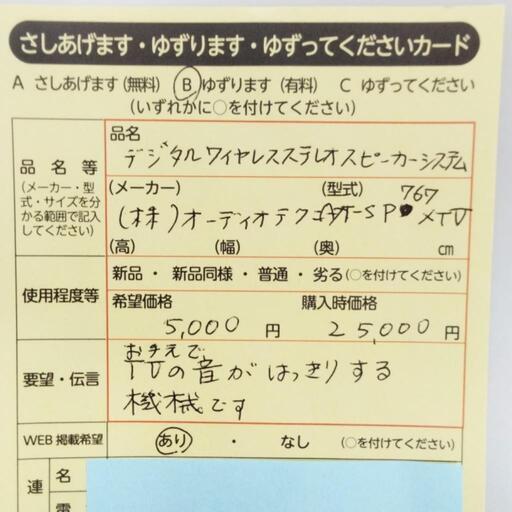 さしあげます・ゆずります・ゆずってくださいカード
A さしあげます(無料) Ⓑゆずります (有料) C ゆずってください
(いずれかに○を付けてください)
品名等
(メーカー・型式・サイズを分かる範囲で記入してください)
品名
デジタルワイヤレスステレオスピーカーシステム
(メーカー) (型式) 767
(株)オーディオテクニカ AT-SP
(高) (幅) (奥) ㎝
使用程度等
新品・新品同様・普通・劣る(○を付けてください)
希望価格 購入時価格
5,000 円 25,000 円
要望・伝言
お手元で
TVの音がはっきりする
機械です
WEB掲載希望 あり ・ なし (○を付けてください)
連
名
電